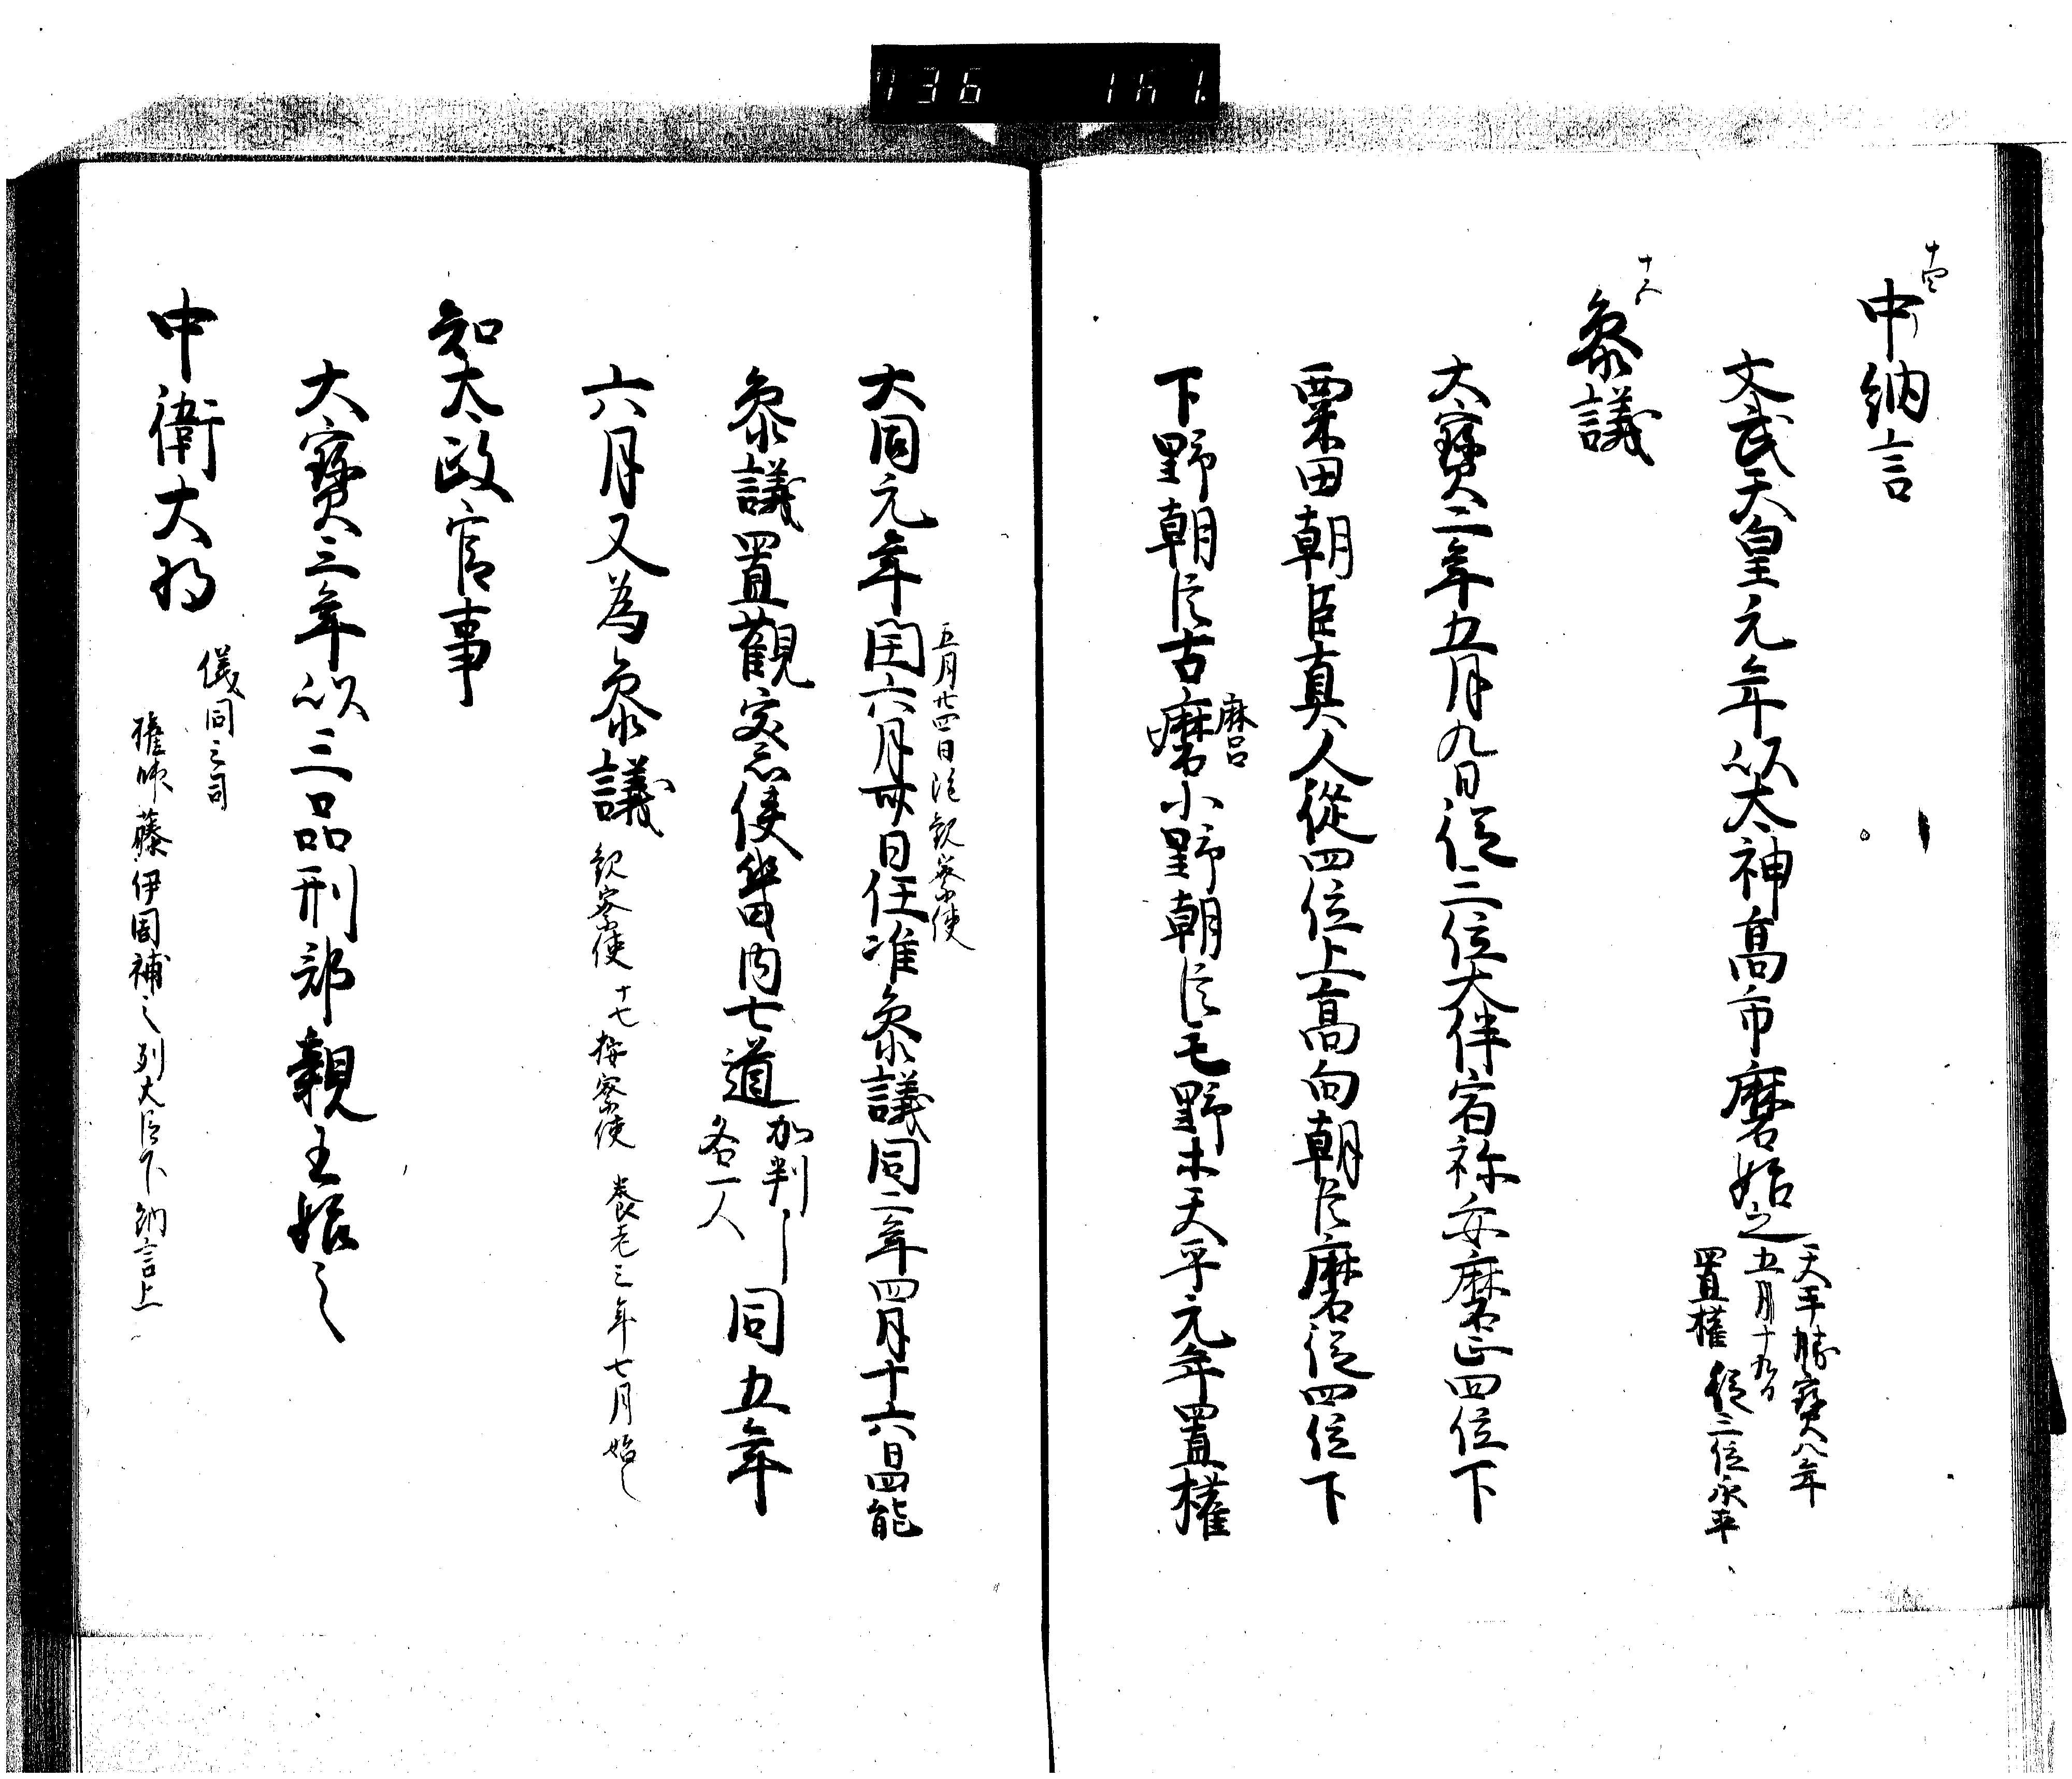 十四
中納言
文武天皇元年以大神高市麿始之
天平勝寳八年
五月十九日
置権 従三位永平
十八
参議
大寳二年五月九日従三位大伴宿祢安麿正四位下
粟田朝臣真人從四位上高向朝臣麿従四位下
下野朝臣古麿小野朝臣毛野木天平元年置権
麻呂
五月廿四日 観察使
大同元年閏六月 日任准参議同二年四月十六日 能
参議置觀察使 畿内七道
加判
各一人
同五年
六月又為参議
観察使 十七 按察使 養老三年七月始之
知太政官事
大寳三年以三品刑部親王始之
中衛大将
儀同三司
権帥藤伊周補之列大臣下納言上
736 161.